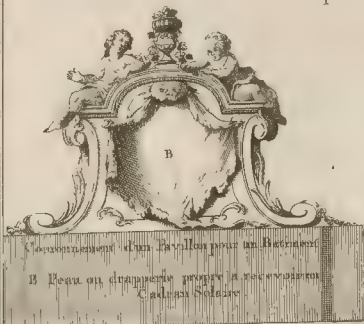 B
Couronnement d'un Pavillon pour un Batiment
B Peau ou drapperie propre a recevoir un
Cadran Solaire